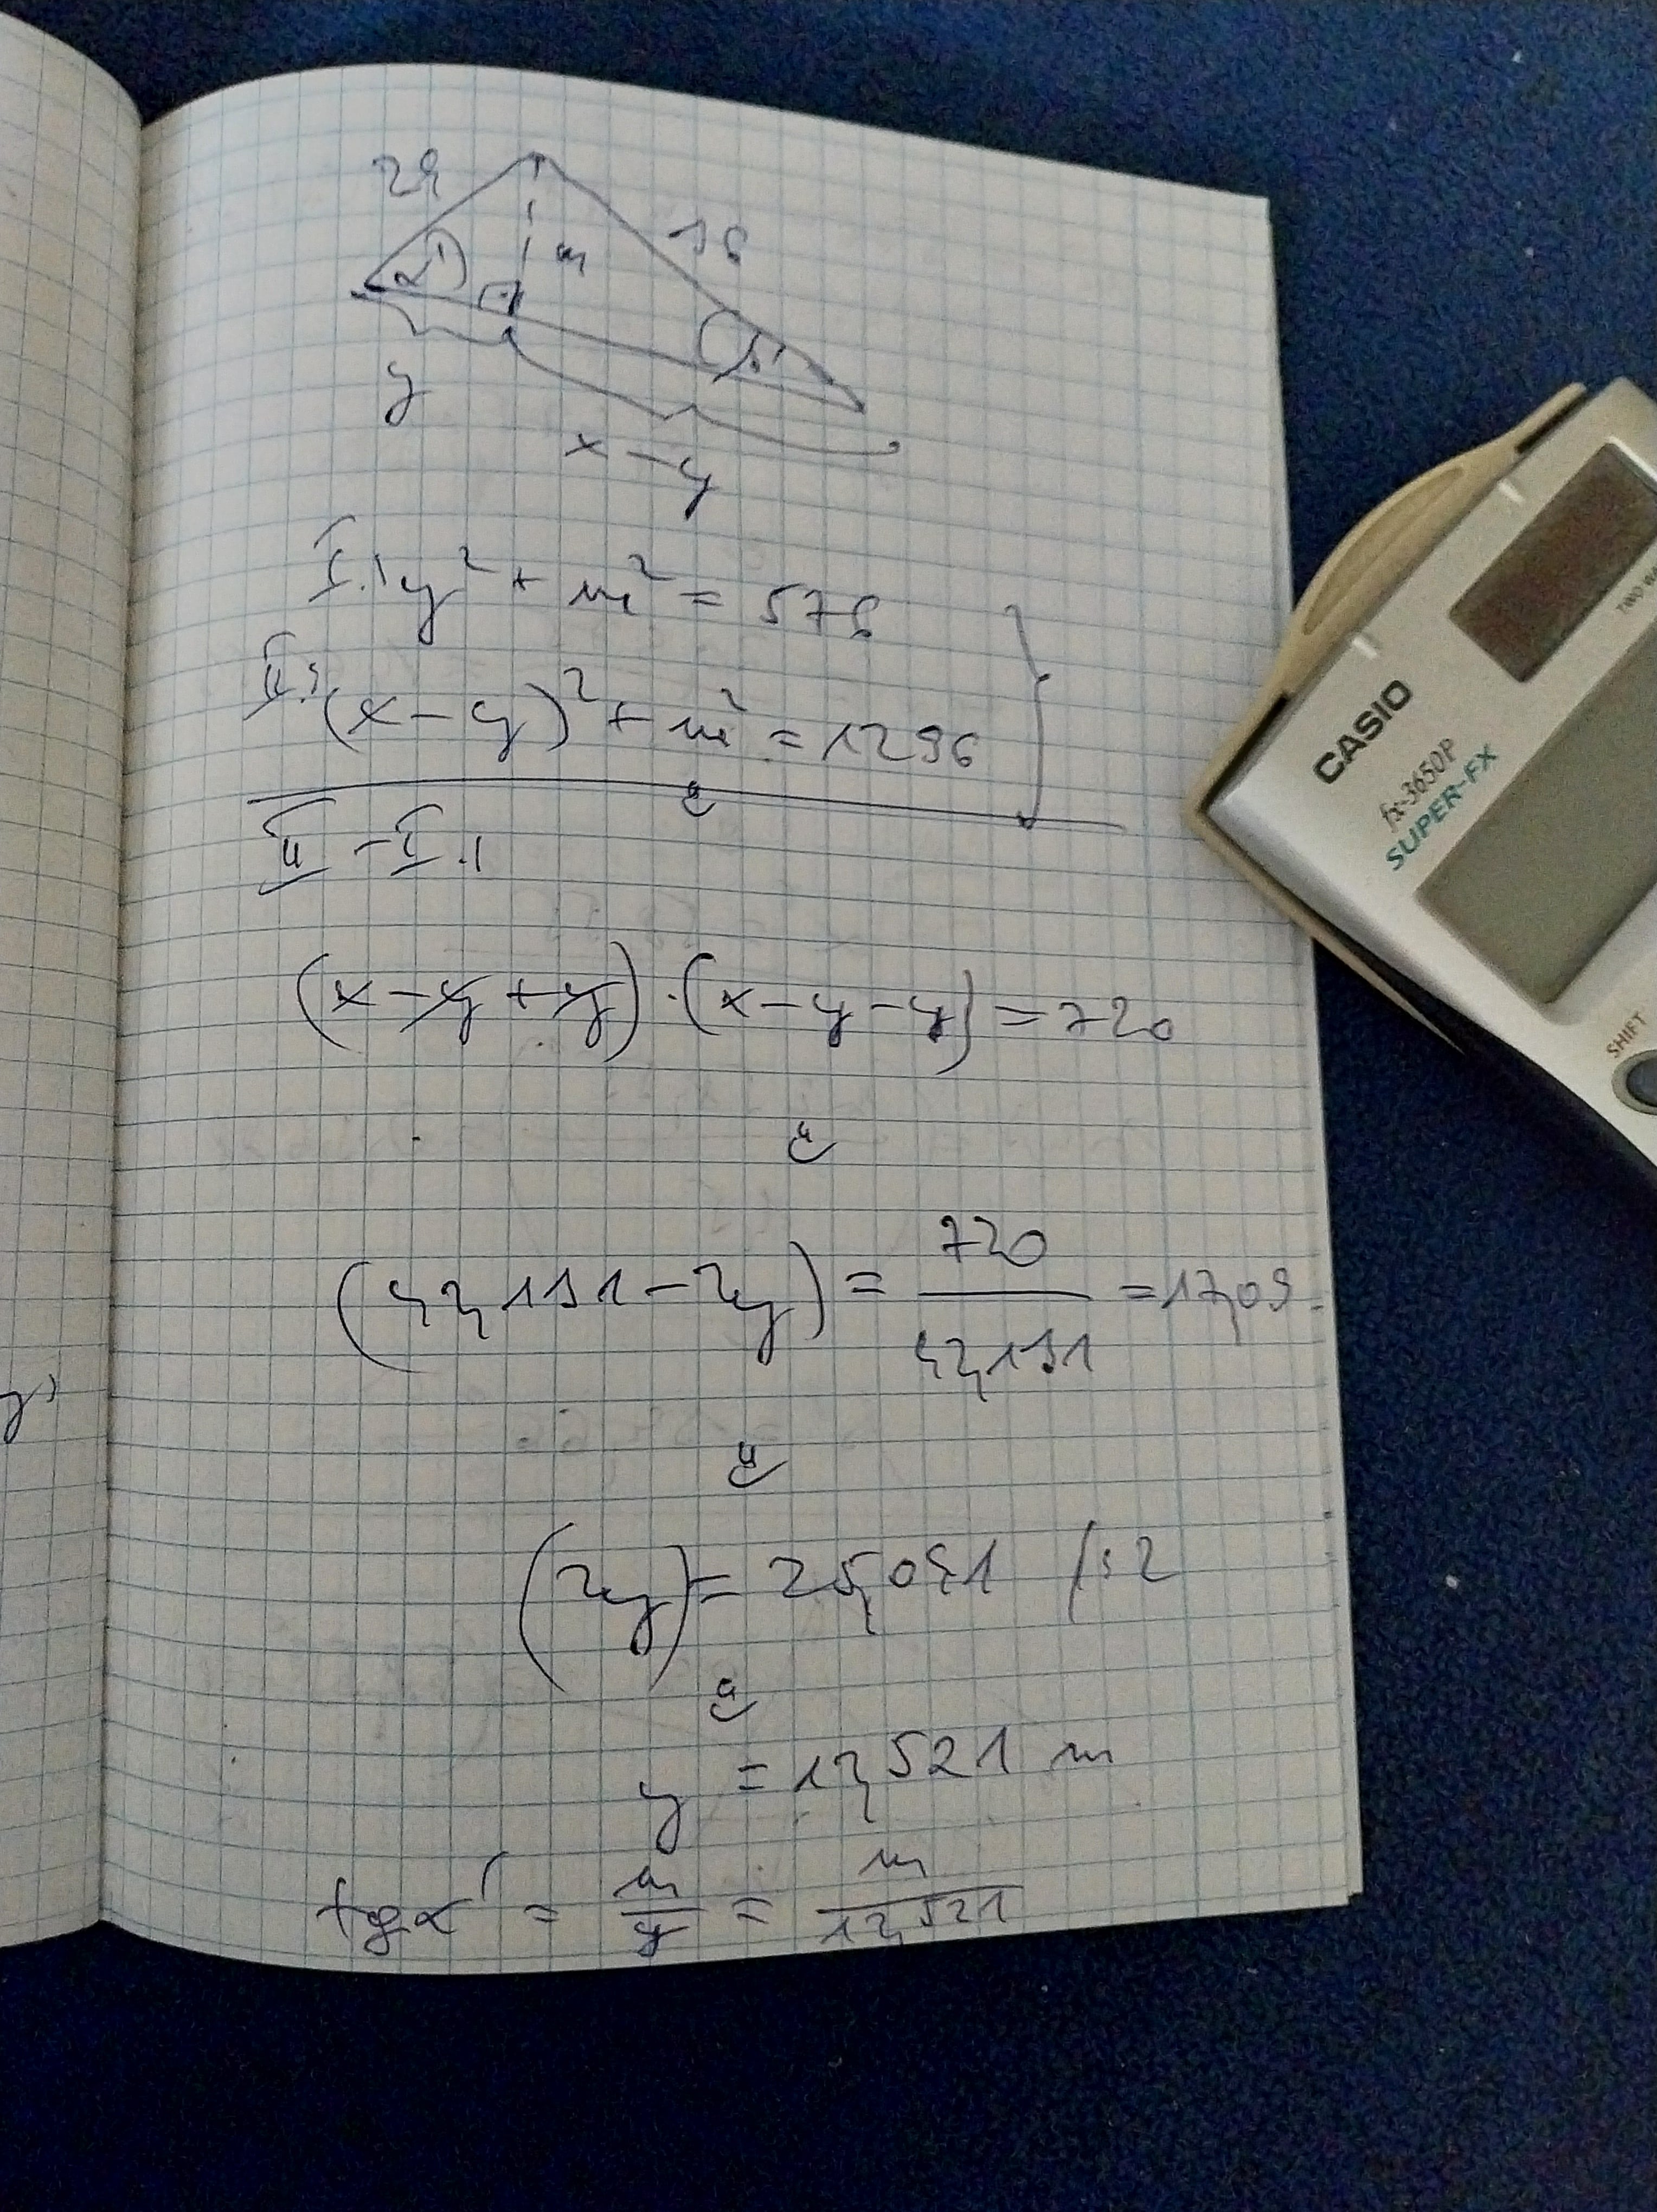 24
m
36
α'
β'
y
x-y
I. y² + m² = 576
II. (x-y)² + m² = 1296
II - I.
(x-y+y)·(x-y-y) = 720
(42,131-2y) = 720/42,131 = 17,09
(2y) = 25,041 /:2
y = 12,521 m
tg α' = m/y = m/12,521
CASIO
fx-3650P
SUPER-FX
SHIFT